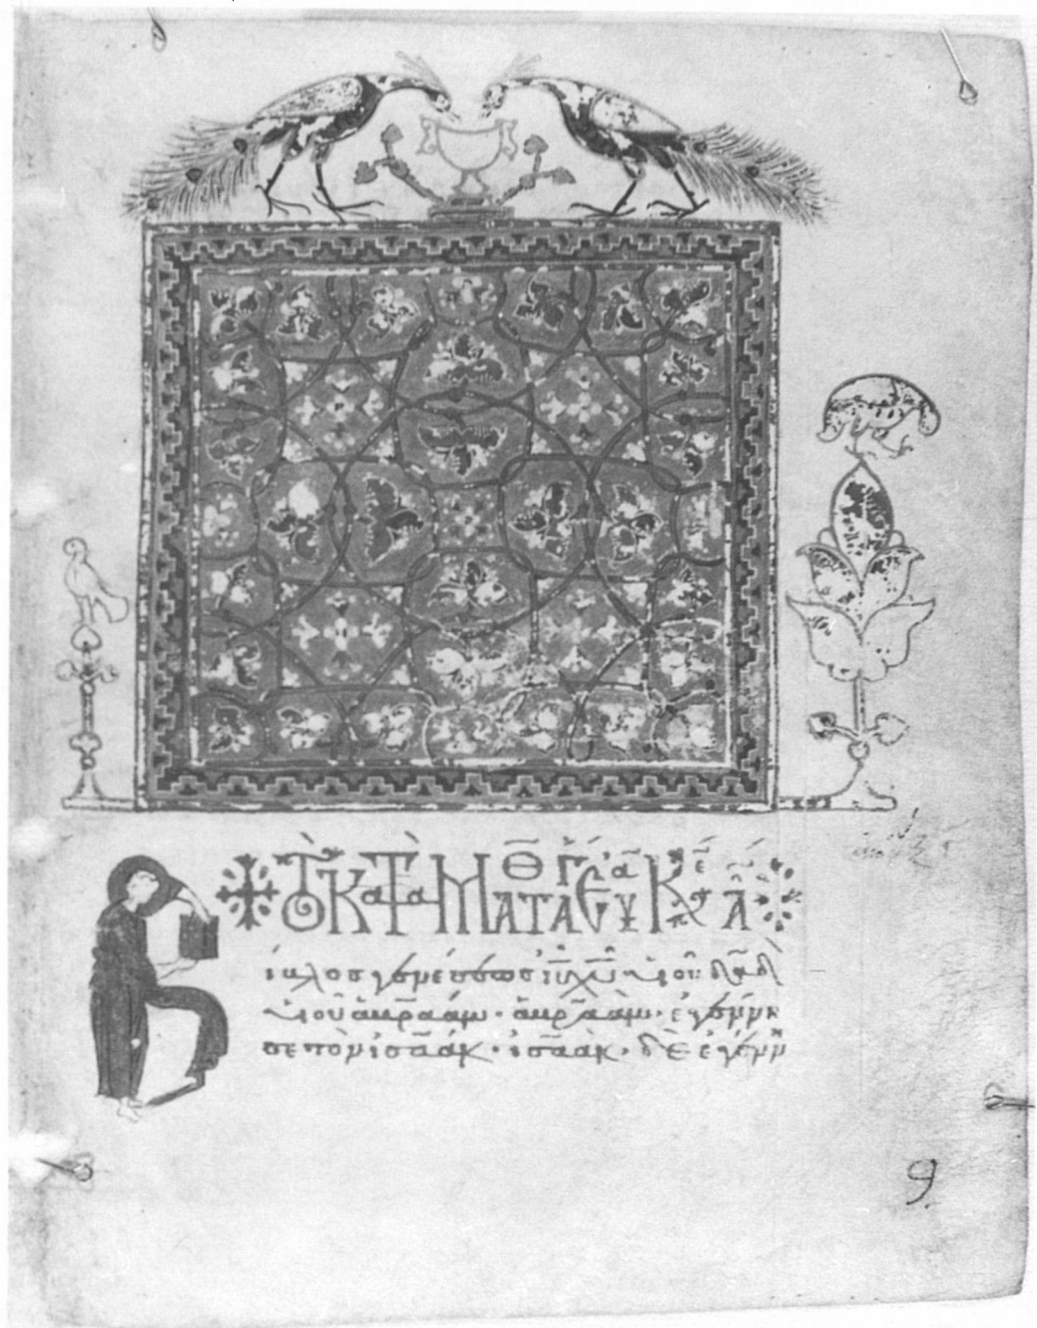 ✠ ΤὸΚαΤὰ ΜΑΤΘ
Βίβλος γενέσεως ἰῦ χῦ υἱοῦ δᾱδ
υἱοῦ ἀβραάμ· ἀβραὰμ· ἐγέννη
σε τὸν ἰσαάκ· ἰσαὰκ· δὲ ἐγένν
9